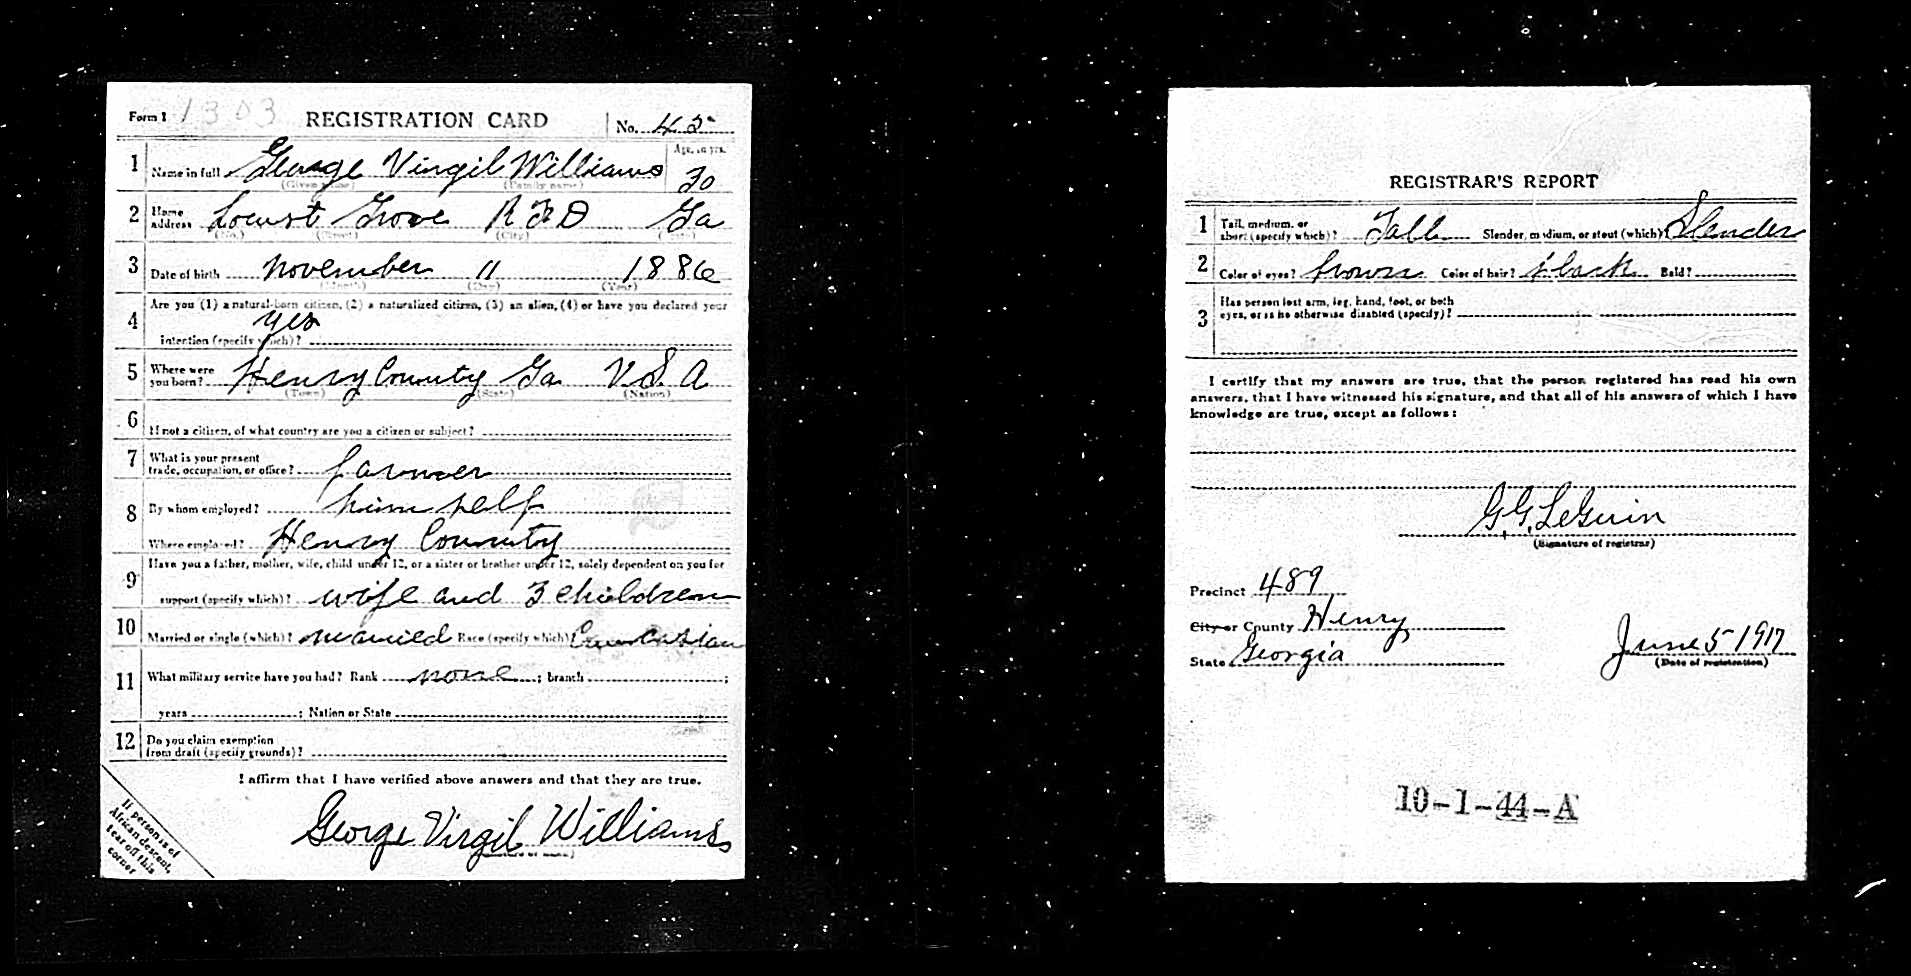 Form 1 1303 REGISTRATION CARD No. 45
1 Name in full George Virgil Williams Age, in yrs. 30
(Given name) (Family name)
2 Home address Locust Grove R F D Ga
(No.) (Street) (City) (State)
3 Date of birth November 11 1886
(Month) (Day) (Year)
4 Are you (1) a natural-born citizen, (2) a naturalized citizen, (3) an alien, (4) or have you declared your
intention (specify which)? yes
5 Where were you born? Henry County Ga U.S.A
(Town) (State) (Nation)
6 If not a citizen, of what country are you a citizen or subject?
7 What is your present trade, occupation, or office? farmer
8 By whom employed? himself
Where employed? Henry County
9 Have you a father, mother, wife, child under 12, or a sister or brother under 12, solely dependent on you for
support (specify which)? wife and 3 children
10 Married or single (which)? married Race (specify which)? Caucasian
11 What military service have you had? Rank none ; branch ;
years ; Nation or State
12 Do you claim exemption from draft (specify grounds)?
I affirm that I have verified above answers and that they are true.
George Virgil Williams
If person is of
African descent,
tear off this
corner
REGISTRAR'S REPORT
1 Tall, medium, or short (specify which)? Tall Slender, medium, or stout (which)? Slender
2 Color of eyes? brown Color of hair? black Bald?
3 Has person lost arm, leg, hand, foot, or both
eyes, or is he otherwise disabled (specify)?
I certify that my answers are true, that the person registered has read his own
answers, that I have witnessed his signature, and that all of his answers of which I have
knowledge are true, except as follows:
G. G. LeGuin
(Signature of registrar)
Precinct 489
City or County Henry
State Georgia
June 5 1917
(Date of registration)
10-1-44-A